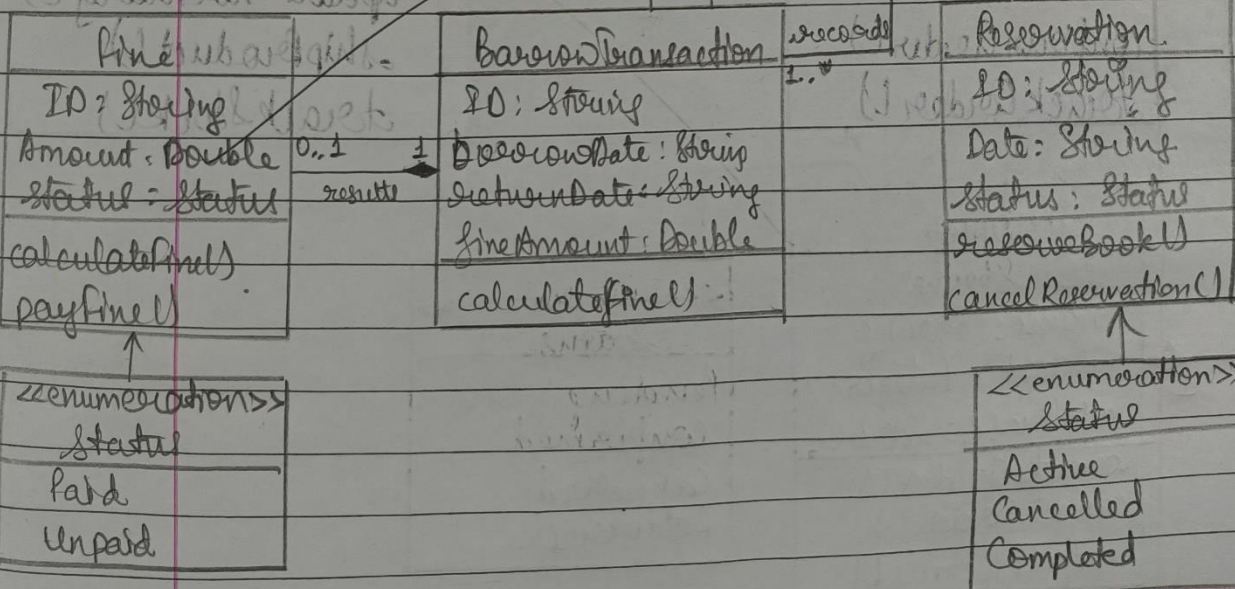 Fine
ID: String
Amount: Double
Status: Status
calculateFine()
payFine()
0..1
1
results
BorrowTransaction
ID: String
borrowDate: String
returnDate: String
fineAmount: Double
calculateFine()
records
1..*
Reservation
ID: String
Date: String
Status: Status
reserveBook()
cancelReservation()
<<enumeration>>
Status
Paid
Unpaid
<<enumeration>>
Status
Active
Cancelled
Completed